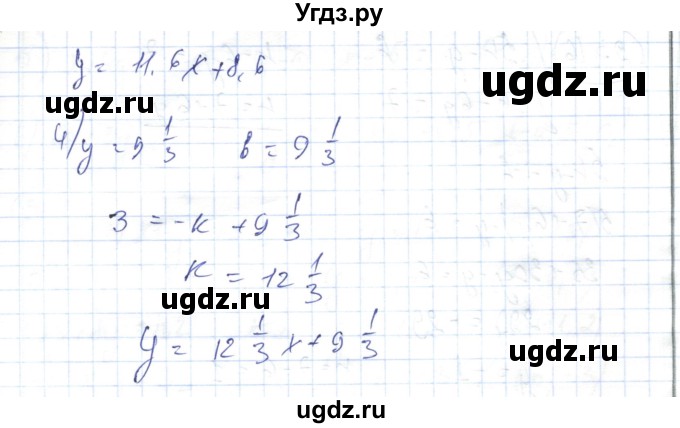 Угдз.ру
y = 11,6x+8,6
4/ y = 9 1/3   b = 9 1/3
3 = -к + 9 1/3
к = 12 1/3
y = 12 1/3 x + 9 1/3
ugdz.ru
ugdz.ru
ugdz.ru
ugdz.ru
ugdz.ru